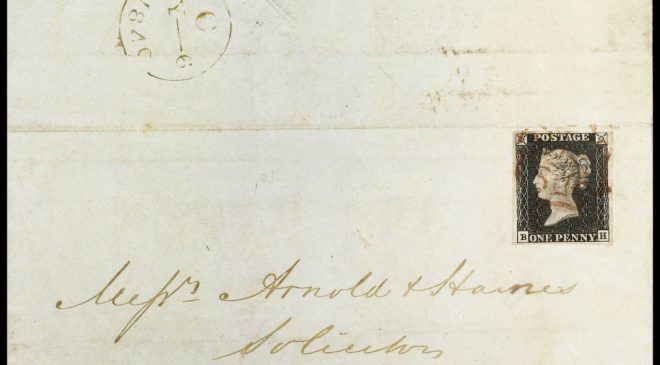 POSTAGE
B ONE PENNY H
Messrs Arnold & Haines
Solicitors